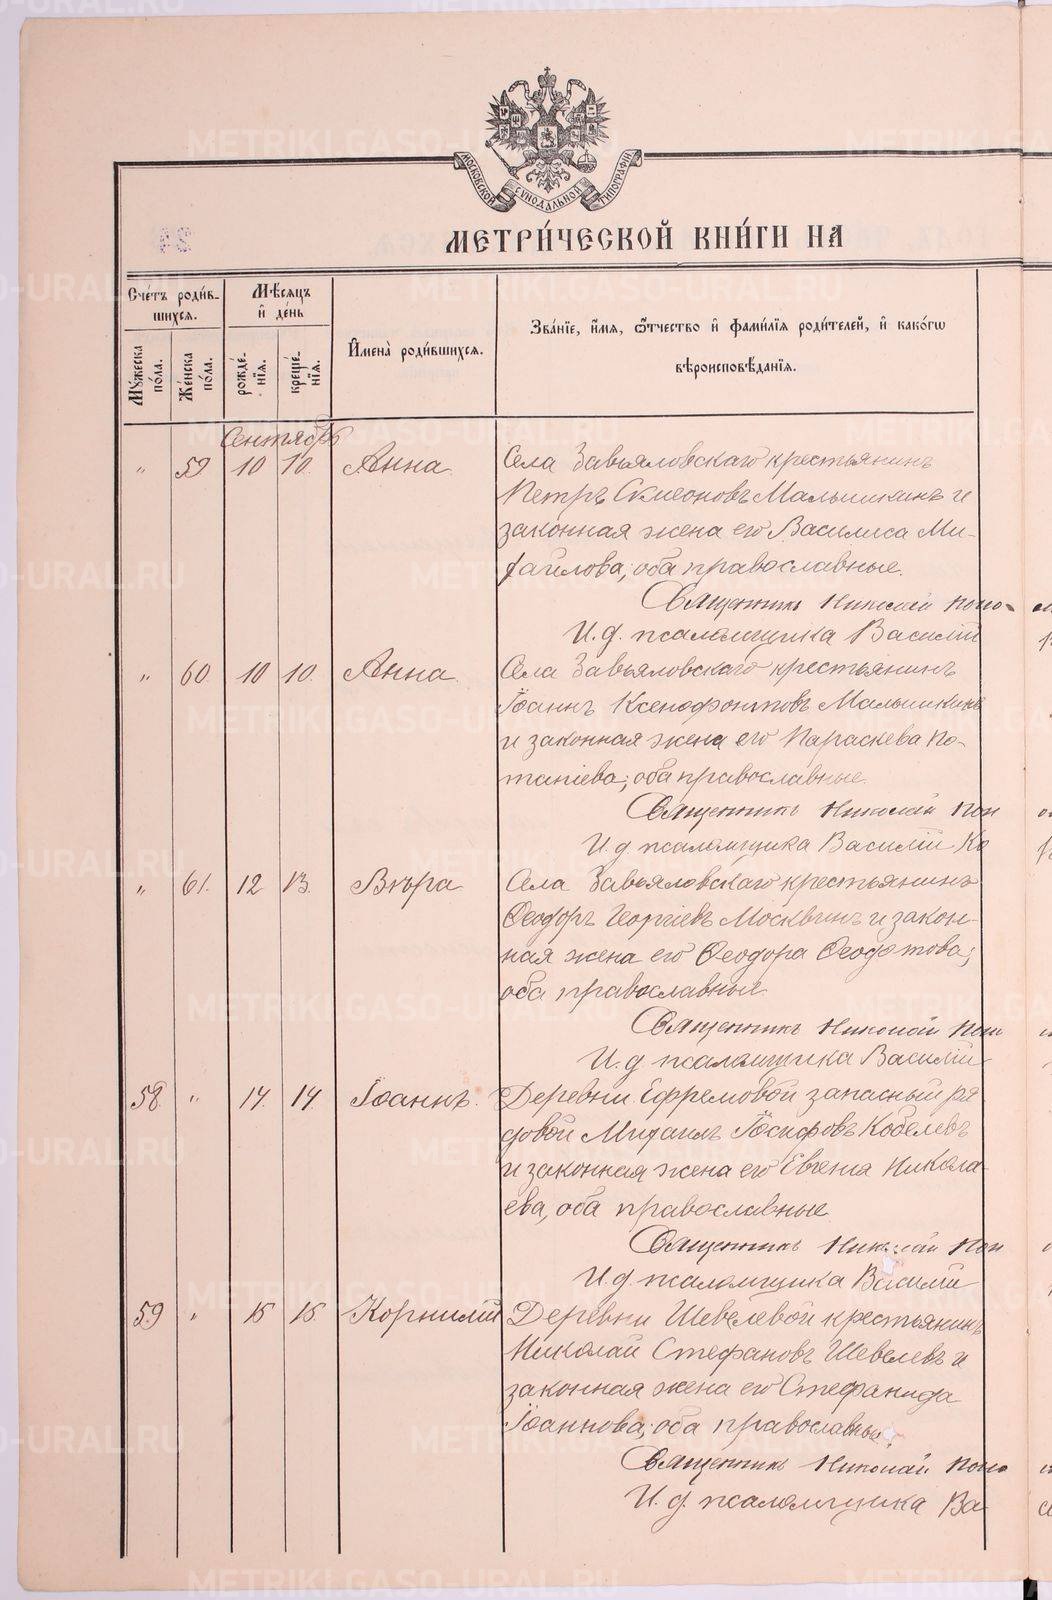 МОСКОВСКОЙ СѴНОДАЛЬНОЙ ТИПОГРАФІИ
МЕТРИ́ЧЕСКОЙ КНИ́ГИ НА
Сче́тъ роди́в-
шихся.
Мѣ́сяцъ
и҆ де́нь
И҆мена̀ роди́вшихся.
Зва́нїе, и҆́мя, ѻ҆́тчество и҆ фами́лїя роди́телей, и҆ како́гѡ
вѣроисповѣ́данїя.
Му́жеска по́ла.
Же́нска по́ла.
рожде́-нїя.
креще́-нїя.
Сентябрь
" 59 10 10. Анна Села Завьяловскаго крестьянинъ
Петръ Симеоновъ Малышкинъ и
законная жена его Василиса Ми-
хаилова; оба православные.
Священникъ Николай Попо
И. д. псаломщика Василій
" 60. 10 10. Анна. Села Завьяловскаго крестьянинъ
Іоаннъ Ксенофонтовъ Малышкинъ
и законная жена его Параскева По-
тапіева; оба православные.
Священникъ Николай Поп
И. д. псаломщика Василій Ко
" 61. 12 13. Вѣра Села Завьяловскаго крестьянинъ
Ѳеодоръ Георгіевъ Москвинъ и закон-
ная жена его Ѳеодора Ѳеодотова;
оба православные
Священникъ Николай Поп
И. д. псаломщика Василій
58. " 14. 14 Іоаннъ. Деревни Ефремовой запасный ря
довой Михаилъ Іосифовъ Кобелевъ
и законная жена его Евгенія Никола-
ева, оба православные
Священникъ Николай Поп
И. д. псаломщика Василій
59 " 15 15 Корнилій Деревни Шевелевой крестьянинъ
Николай Стефановъ Шевелевъ и
законная жена его Стефанида
Іоаннова; оба православные.
Священникъ Николай Попо
И. д. псаломщика Ва
METRIKI.GASO-URAL.RU